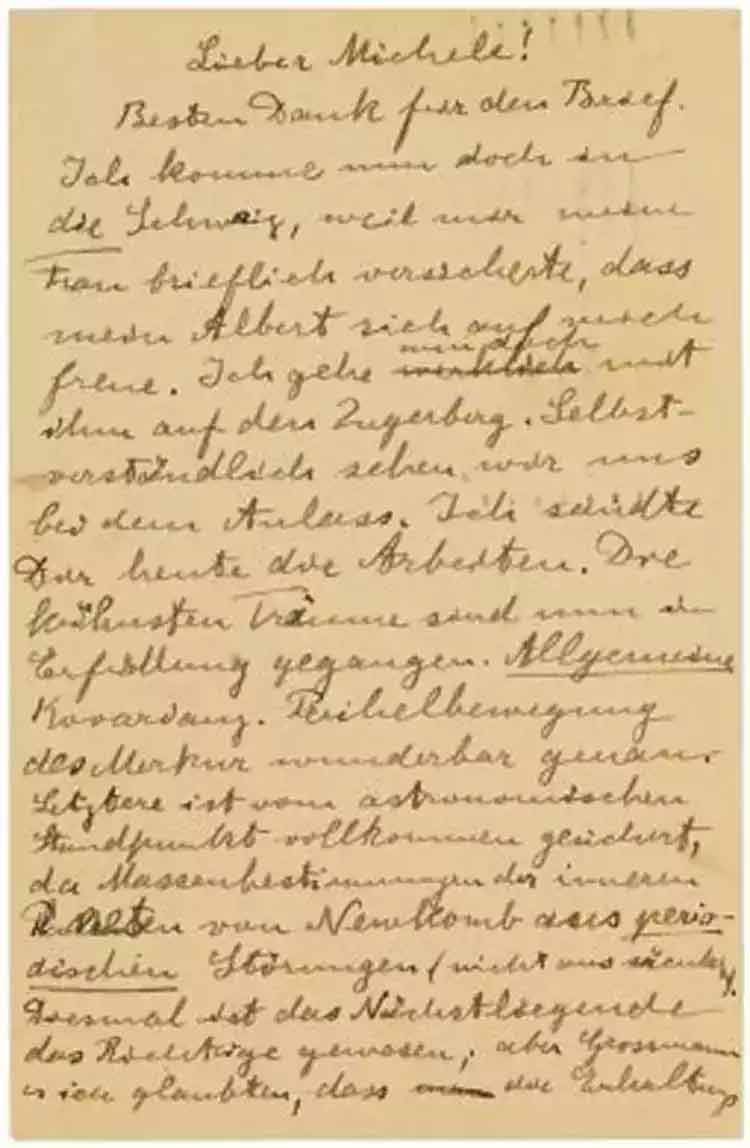 Lieber Michele!
Besten Dank für den Brief.
Ich komme nun doch in
die Schweiz, weil mir meine
Frau brieflich versicherte, dass
mein Albert sich auf mich
freue. Ich gehe nun doch mit
ihm auf den Zugerberg. Selbst-
verständlich sehen wir uns
bei dem Anlass. Ich sandte
Dir heute die Arbeiten. Die
kühnsten Träume sind nun in
Erfüllung gegangen. Allgemeine
Kovarianz. Perihelbewegung
des Merkur wunderbar genau.
Letztere ist vom astronomischen
Standpunkt vollkommen gesichert,
da Massenbestimmungen der inneren
von Newkomb aus perio-
dischen Störungen (nicht aus
Diesmal ist das Nächstliegende
das Richtige gewesen; aber Grossmann
u ich glaubten, dass die Erhaltungs